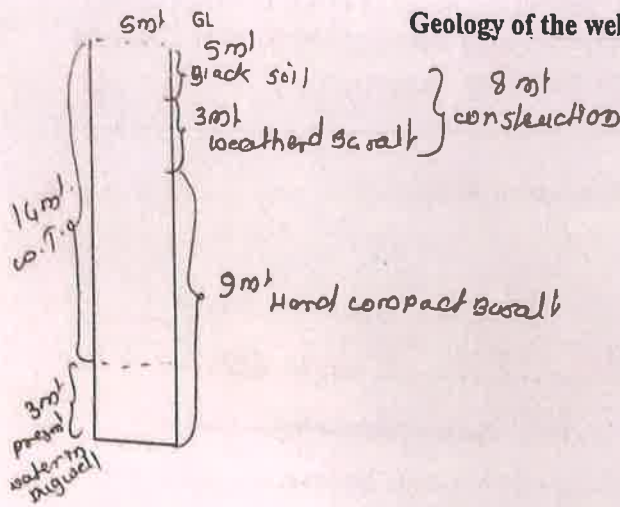 Geology of the wel
5mt GL
5mt
Black soil
3mt
weatherd Basalt
8 mt
construction
14mt
w.T.
9mt Hard compact Basalt
3mt
present
water in
dugwell